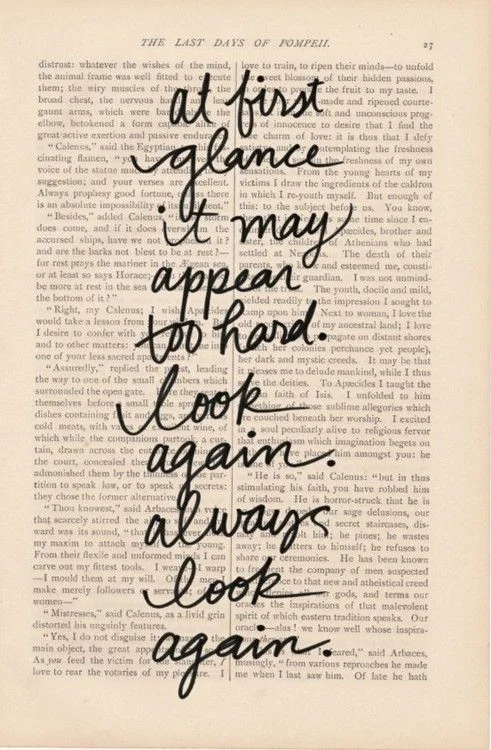 THE LAST DAYS OF POMPEII. 27
at first
glance
it may
appear
too hard.
look
again.
always
look
again.
distrust: whatever the wishes of the mind,
the animal frame was well fitted to
them; the wiry muscles of the
broad chest, the nervous
gaunt arms, which were
elbow, betokened a form
great active exertion and passive
"Calenus," said the Egyptian
cinating flamen, "you
voice of the statue
suggestion; and your verses are excellent.
Always prophesy good fortune, there
is an absolute impossibility
"Besides," added Calenus,
does come, and if it does the
accursed ships, have we not it?
and are the barks not blest to be at rest?—
for rest prays the mariner in the Ægean
or at least so says Horace;
be more at rest in the sea
the bottom of it?"
"Right, my Calenus; I wish
would take a lesson from
I desire to confer with
and to other matters:
one of your less sacred
"Assuredly," replied the priest, leading
the way to one of the small chambers which
surrounded the open gate.
themselves before small table
dishes containing fruit and
cold meats, with wine, of
which while the companions partook, a
tain, drawn across the
the court, concealed
admonished them by the
tition to speak low, or to speak secrets:
they chose the former alternative.
"Thou knowest," said
that scarcely stirred the
ward was its sound,
my maxim to attach young.
From their flexile and unformed minds I can
carve out my fittest tools. I warp
—I mould them at my will. Of
make merely followers or
women—"
"Mistresses," said Calenus, as a livid grin
distorted his ungainly features.
"Yes, I do not disguise it
main object, the great
As you feed the victim for
love to rear the votaries of my pleasure. I
love to train, to ripen their minds—to unfold
sweet blossom of their hidden passions,
the fruit to my taste. I
made and ripened
soft and unconscious
of innocence to desire that I find the
charm of love: it is thus that I defy
contemplating the freshness
freshness of my own
sensations. From the young hearts of my
victims I draw the ingredients of the caldron
in which I re-youth myself. But enough of
this: to the subject before us. You know,
time since I
brother and
Athenians who had
settled at The death of their
parents, who and esteemed me,
guardian. I was not
The youth, docile and mild,
yielded readily to the impression I sought to
upon Next to woman, I love the
old of my ancestral land; I love
on distant shores
her colonies perchance yet people),
her dark and mystic creeds. It may be that
pleases me to delude mankind, while I thus
the deities. To Apæcides I taught the
faith of Isis. I unfolded to him
of those sublime allegories which
couched beneath her worship. I excited
soul peculiarly alive to religious fervor
that enthusiasm which imagination begets on
place him amongst you: he
"He is so," said Calenus: "but in thus
stimulating his faith, you have robbed him
of wisdom. He is horror-struck that he is
sage delusions, our
secret staircases,
him; he pines; he wastes
away; he mutters to himself; he refuses to
share ceremonies. He has been known
to frequent the company of men suspected
to that new and atheistical creed
gods, and terms our
oracles the inspirations of that malevolent
spirit of which eastern tradition speaks. Our
alas! we know well whose
feared," said Arbaces,
musingly, "from various reproaches he made
me when I last saw him. Of late he hath